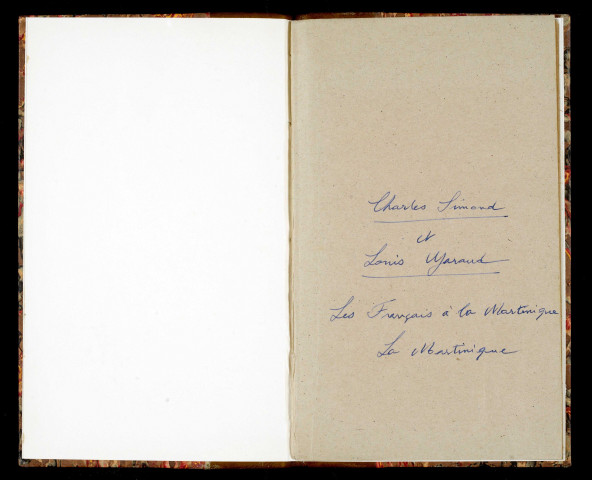 Charles Simond
et
Louis Garaud
Les Français à la Martinique
La Martinique